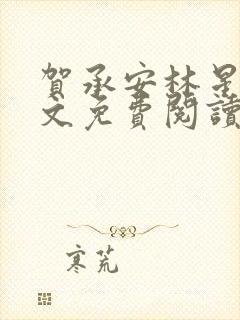 賀承安林星
文免費閱讀
寒荒